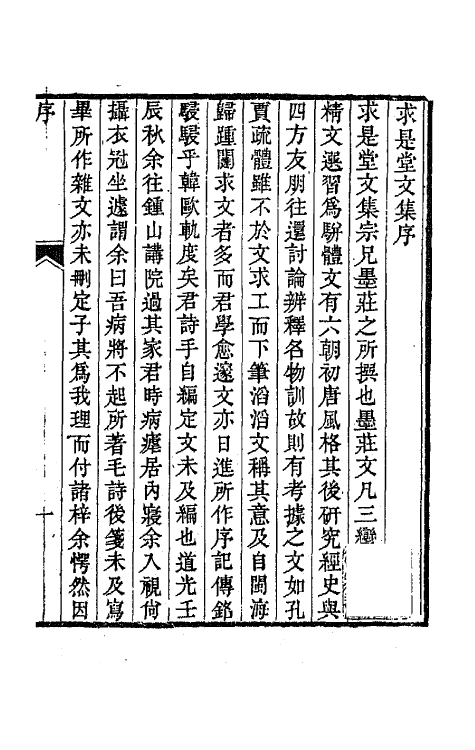 求是堂文集序
求是堂文集宗兄墨莊之所撰也墨莊文凡三變
精文選習爲駢體文有六朝初唐風格其後研究經史與
四方友朋往還討論辨釋名物訓故則有考據之文如孔
賈疏體雖不於文求工而下筆滔滔文稱其意及自閩海
歸踵闤求文者多而君學愈邃文亦日進所作序記傳銘
駸駸乎韓歐軌度矣君詩手自編定文未及編也道光壬
辰秋余往鍾山講院過其家君時病瘧居內寢余入視尙
攝衣冠坐遽謂余曰吾病將不起所著毛詩後箋未及寫
畢所作雜文亦未刪定子其爲我理而付諸梓余愕然因
序